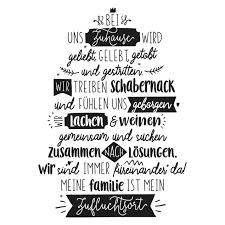 BEI
UNS Zuhause WIRD
geliebt, GELEBT, getobt
und gestritten.
WIR TREIBEN SCHABERNACK
UND FÜHLEN UNS geborgen.
WIR LACHEN & WEINEN
gemeinsam und suchen
ZUSAMMEN NACH LÖSUNGEN.
Wir sind IMMER füreinander da!
MEINE familie IST MEIN
Zufluchtsort